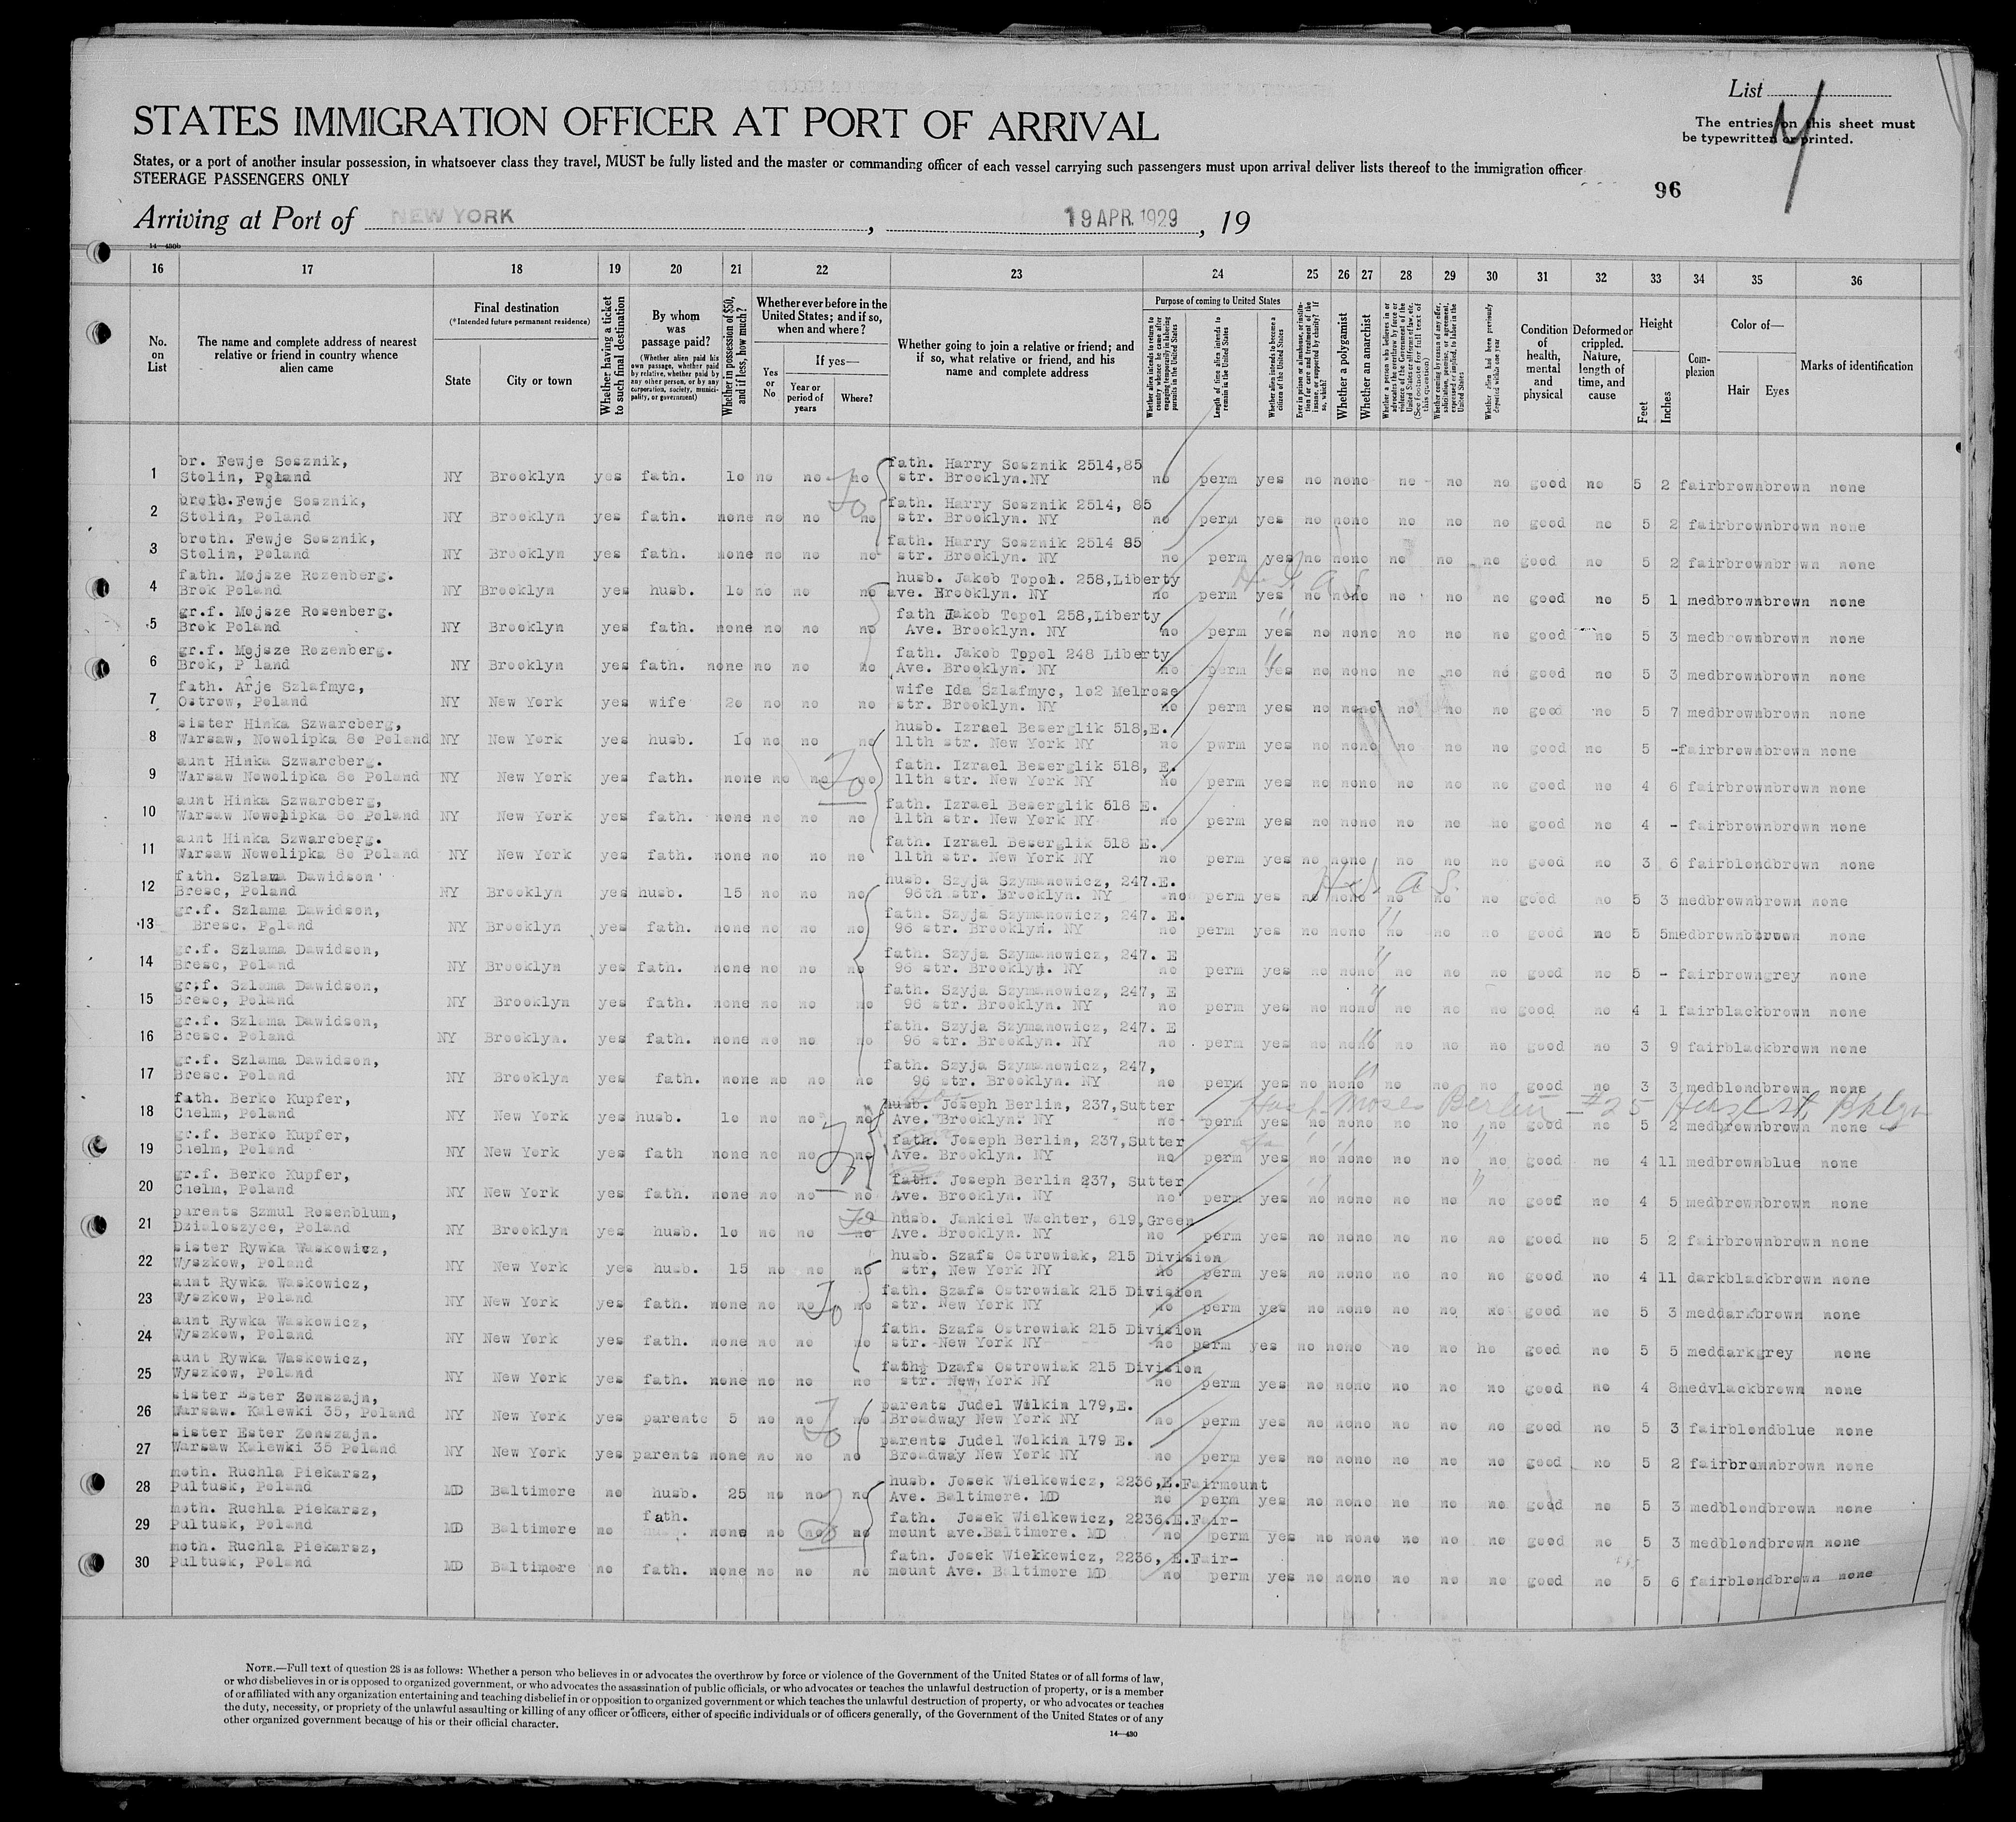 List
STATES IMMIGRATION OFFICER AT PORT OF ARRIVAL
The entries on this sheet must
be typewritten or printed.
States, or a port of another insular possession, in whatsoever class they travel, MUST be fully listed and the master or commanding officer of each vessel carrying such passengers must upon arrival deliver lists thereof to the immigration officer
STEERAGE PASSENGERS ONLY
96
Arriving at Port of NEW YORK, 19 APR. 1929, 19
14—430b
16 17 18 19 20 21 22 23 24 25 26 27 28 29 30 31 32 33 34 35 36
No. on List
The name and complete address of nearest relative or friend in country whence alien came
Final destination
(*Intended future permanent residence)
State
City or town
Whether having a ticket to such final destination
By whom was passage paid?
(Whether alien paid his own passage, whether paid by relative, whether paid by any other person, or by any corporation, society, municipality, or government)
Whether in possession of $50, and if less, how much?
Whether ever before in the United States; and if so, when and where?
Yes or No
If yes—
Year or period of years
Where?
Whether going to join a relative or friend; and if so, what relative or friend, and his name and complete address
Purpose of coming to United States
Whether alien intends to return to country whence he came after engaging temporarily in laboring pursuits in the United States
Length of time alien intends to remain in the United States
Whether alien intends to become a citizen of the United States
Ever in prison or almshouse, or institution for care and treatment of the insane, or supported by charity? If so, which?
Whether a polygamist
Whether an anarchist
Whether a person who believes in or advocates the overthrow by force or violence of the Government of the United States or all forms of law, etc. (See footnote for full text of this question)
Whether coming by reason of any offer, solicitation, promise, or agreement, expressed or implied, to labor in the United States
Whether alien had been previously deported within one year
Condition of health, mental and physical
Deformed or crippled. Nature, length of time, and cause
Height
Feet
Inches
Complexion
Color of—
Hair
Eyes
Marks of identification
1 br. Fewje Sosznik, Stolin, Poland NY Brooklyn yes father. 10 no no no fath. Harry Sosznik 2514,85 str. Brooklyn.NY no perm yes no none no no no good no 5 2 fair brown brown none
2 broth.Fewje Sosznik, Stolin, Poland NY Brooklyn yes fath. none no no no fath. Harry Sosznik 2514, 85 str. Brooklyn. NY no perm yes no none no no no good no 5 2 fair brown brown none
3 broth. Fewje Sosznik, Stolin, Poland NY Brooklyn yes fath. none no no no fath. Harry Sosznik 2514 85 str. Brooklyn. NY no perm yes no none no no no good no 5 2 fair brown br wn none
4 fath. Mojsze Rozenberg. Brok Poland NY Brooklyn yes husb. 10 no no no husb. Jakob Topol. 258,Liberty ave. Brooklyn. NY no perm yes no none no no no good no 5 1 med brown brown none
5 gr.f. Mojsze Rosenberg. Brok Poland NY Brooklyn yes fath. none no no no fath Jakob Topol 258,Liberty Ave. Brooklyn. NY no perm yes no none no no no good no 5 3 med brown brown none
6 gr.f. Mojsze Rozenberg. Brok, Poland NY Brooklyn yes fath. none no no no fath. Jakob Topol 248 Liberty Ave. Brooklyn. NY no perm yes no none no no no good no 5 3 med brown brown none
7 fath. Arje Szlafmyc, Ostrow, Poland NY New York yes wife 20 no no no wife Ida Szlafmyc, 102 Melrose str. Brooklyn. NY no perm yes no none no no no good no 5 7 med brown brown none
8 sister Hinka Szwarcberg, Warsaw, Nowolipka 80 Poland NY New York yes husb. 10 no no no husb. Izrael Beserglik 518,E. 11th str. New York NY no pwrm yes no none no no no good no 5 - fair brown brown none
9 aunt Hinka Szwarcberg. Warsaw Nowolipka 80 Poland NY New York yes fath. none no no no fath. Izrael Beserglik 518, E. 11th str. New York NY no perm yes no none no no no good no 4 6 fair brown brown none
10 aunt Hinka Szwarcberg, Warsaw Nowolipka 80 Poland NY New York yes fath. none no no no fath. Izrael Beserglik 518 E. 11th str. New York NY no perm yes no none no no no good no 4 - fair brown brown none
11 aunt Hinka Szwarcberg. Warsaw Nowolipka 80 Poland NY New York yes fath. none no no no fath. Izrael Beserglik 518 E. 11th str. New York NY no perm yes no none no no no good no 3 6 fair blond brown none
12 fath. Szlama Dawidson Bresc, Poland NY Brooklyn yes husb. 15 no no no husb. Szyja Szymanowicz, 247.E. 96th str. Brooklyn. NY no perm yes no none no no no good no 5 3 med brown brown none
13 gr.f. Szlama Dawidson, Bresc. Poland NY Brooklyn yes fath. none no no no fath. Szyja Szymanowicz, 247. E. 96 str. Brooklyn. NY no perm yes no none no no no good no 5 5 med brown brown none
14 gr.f. Szlama Dawidson, Bresc, Poland NY Brooklyn yes fath. none no no no fath. Szyja Szymanowicz, 247. E 96 str. Brooklyn. NY no perm yes no none no no no good no 5 - fair brown grey none
15 gr.f. Szlama Dawidson, Bresc, Poland NY Brooklyn yes fath. none no no no fath. Szyja Szymanowicz, 247, E 96 str. Brooklyn. NY no perm yes no none no no no good no 4 1 fair black brown none
16 gr.f. Szlama Dawidson, Bresc. Poland NY Brooklyn. yes fath. none no no no fath. Szyja Szymanowicz, 247. E 96 str. Brooklyn. NY no perm yes no none no no no good no 3 9 fair black brown none
17 gr.f. Szlama Dawidson, Bresc. Poland NY Brooklyn yes fath. none no no no fath. Szyja Szymanowicz, 247, 96 str. Brooklyn. NY no perm yes no none no no no good no 3 3 med blond brown none
Husb Moses Berlin #25 St, Bklyn
18 fath. Berko Kupfer, Chelm, Poland NY New York yes husb. 10 no no no husb. Joseph Berlin, 237,Sutter Ave. Brooklyn. NY no perm yes no none no no no good no 5 2 med brown brown none
19 gr.f. Berko Kupfer, Chelm, Poland NY New York yes fath none no no no fath. Joseph Berlin, 237,Sutter Ave. Brooklyn. NY no perm yes no none no no no good no 4 11 med brown blue none
20 gr.f. Berko Kupfer, Chelm, Poland NY New York yes fath. none no no no fath. Joseph Berlin 237, Sutter Ave. Brooklyn. NY no perm yes no none no no no good no 4 5 med brown brown none
21 parents Szmul Rosenblum, Dzialoszyce, Poland NY Brooklyn yes husb. 10 no no no husb. Jankiel Wachter, 619,Green Ave. Brooklyn. NY no perm yes no none no no no good no 5 2 fair brown brown none
22 sister Rywka Waskowicz, Wyszkow, Poland NY New York yes husb. 15 no no no husb. Szafs Ostrowiak, 215 Division str, New York NY no perm yes no none no no no good no 4 11 dark black brown none
23 aunt Rywka Waskowicz, Wyszkow, Poland NY New York yes fath. none no no no fath. Szafs Ostrowiak 215 Division str. New York NY no perm yes no none no no no good no 5 3 med dark brown none
24 aunt Rywka Waskowicz, Wyszkow, Poland NY New York yes fath. none no no no fath. Szafs Ostrowiak 215 Division str. New York NY no perm yes no none no no no good no 5 5 med dark grey none
25 aunt Rywka Waskowicz, Wyszkow, Poland NY New York yes fath. none no no no fath. Dzafs Ostrowiak 215 Division str. New York NY no perm yes no none no no no good no 4 8 med vlack brown none
26 sister Ester Zonszajn, Warsaw. Kalewki 35, Poland NY New York yes parents 5 no no no parents Judel Wolkin 179,E. Broadway New York NY no perm yes no none no no no good no 5 3 fair blond blue none
27 sister Ester Zonszajn. Warsaw Kalewki 35 Poland NY New York yes parents none no no no parents Judel Wolkin 179 E. Broadway New York NY no perm yes no none no no no good no 5 2 fair brown brown none
28 moth. Ruchla Piekarsz, Pultusk, Poland MD Baltimore no husb. 25 no no no husb. Josek Wielkewicz, 2236,E.Fairmount Ave. Baltimore. MD no perm yes no none no no no good no 5 3 med blond brown none
29 moth. Ruchla Piekarsz, Pultusk, Poland MD Baltimore no fath. none no no no fath. Josek Wielkewicz, 2236.E.Fair- mount ave.Baltimore. MD no perm yes no none no no no good no 5 3 med blond brown none
30 moth. Ruchla Piekarsz, Pultusk, Poland MD Baltimore no fath. none no no no fath. Josek Wiekkewicz, 2236, E.Fair- mount Ave. Baltimore MD no perm yes no none no no no good no 5 6 fair blond brown none
NOTE.—Full text of question 28 is as follows: Whether a person who believes in or advocates the overthrow by force or violence of the Government of the United States or of all forms of law,
or who disbelieves in or is opposed to organized government, or who advocates the assassination of public officials, or who advocates or teaches the unlawful destruction of property, or is a member
of or affiliated with any organization entertaining and teaching disbelief in or opposition to organized government or which teaches the unlawful destruction of property, or who advocates or teaches
the duty, necessity, or propriety of the unlawful assaulting or killing of any officer or officers, either of specific individuals or of officers generally, of the Government of the United States or of any
other organized government because of his or their official character.
14—430